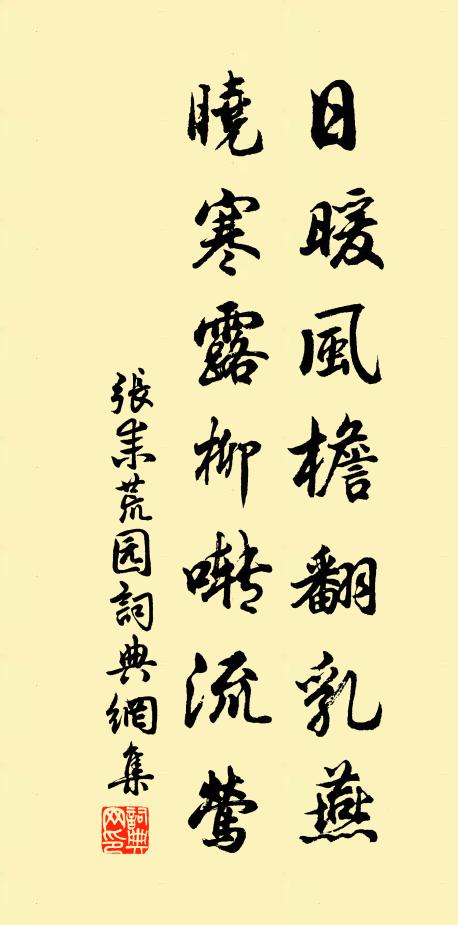 日暖風檐翻乳燕
曉寒露柳囀流鶯
張耒荒园詞典網集
詞典网印